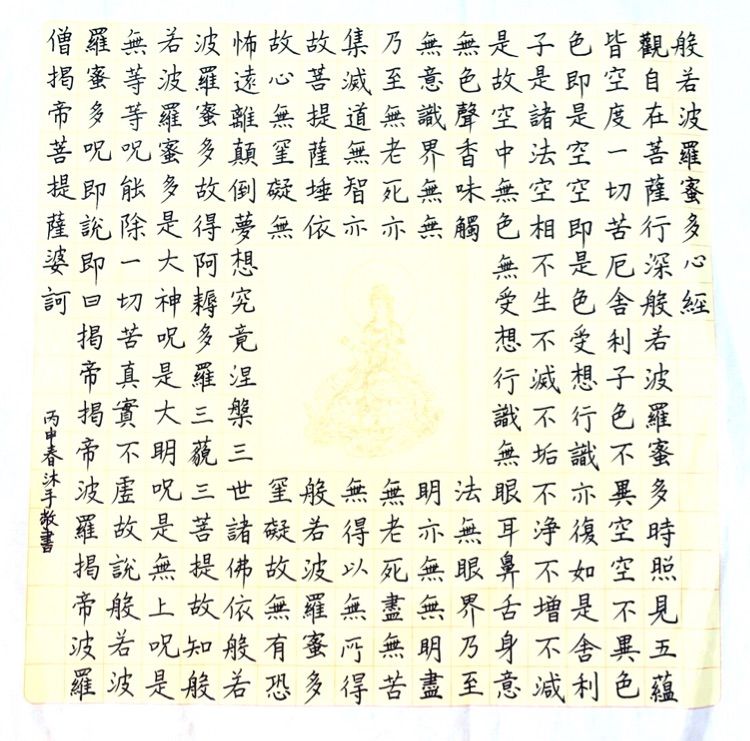 般若波羅蜜多心經
觀自在菩薩行深般若波羅蜜多時照見五蘊
皆空度一切苦厄舍利子色不異空空不異色
色即是空空即是色受想行識亦復如是舍利
子是諸法空相不生不滅不垢不淨不增不減
是故空中無色無受想行識無眼耳鼻舌身意
無色聲香味觸法無眼界乃至
無意識界無無明亦無無明盡
乃至無老死亦無老死盡無苦
集滅道無智亦無得以無所得
故菩提薩埵依般若波羅蜜多
故心無罣礙無罣礙故無有恐
怖遠離顛倒夢想究竟涅槃三世諸佛依般若
波羅蜜多故得阿耨多羅三藐三菩提故知般
若波羅蜜多是大神呪是大明呪是無上呪是
無等等呪能除一切苦真實不虛故說般若波
羅蜜多呪即說即曰揭帝揭帝波羅揭帝波羅
僧揭帝菩提薩婆訶
丙申春沐手敬書